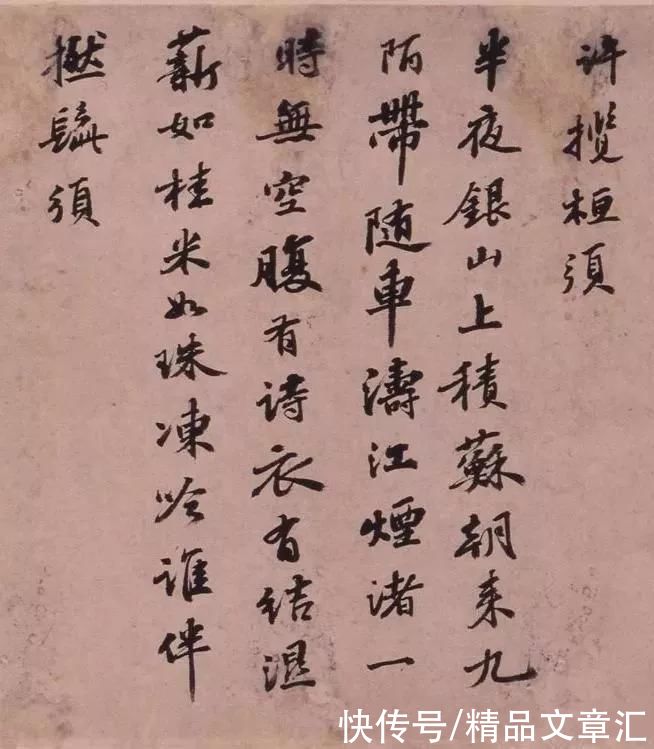 许揽桓须
半夜銀山上積蘇朝来九
陌帶随車濤江煙渚一
時無空腹有诗衣有结濕
薪如桂米如珠凍吟谁伴
撚髭須
快传号/精品文章汇